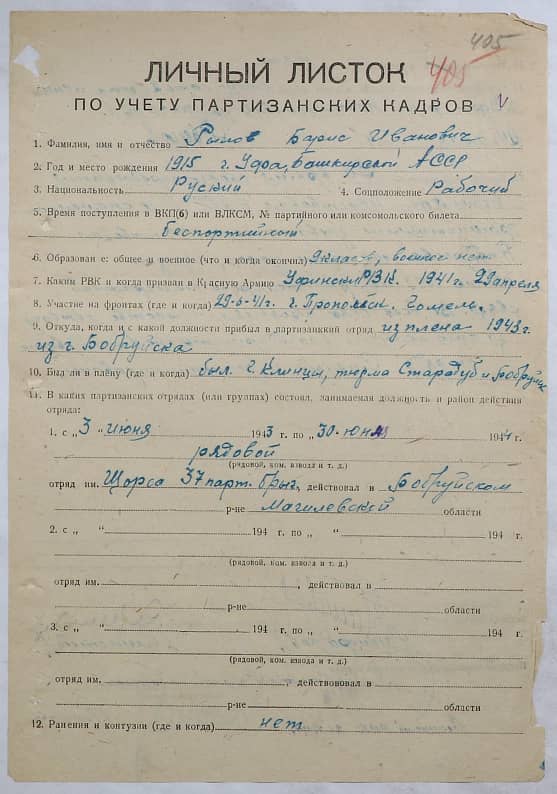 405
ЛИЧНЫЙ ЛИСТОК 405
ПО УЧЕТУ ПАРТИЗАНСКИХ КАДРОВ V
1. Фамилия, имя и отчество Рылов Барис Иванович
2. Год и место рождения 1915 г. Уфа, Башкирской АССР
3. Национальность Руский 4. Соцположение Рабочий
5. Время поступления в ВКП(б) или ВЛКСМ, № партийного или комсомольского билета
беспортийный
6. Образование: общее и военное (что и когда окончил) 9 класов, военное нет
7. Каким РВК и когда призван в Красную Армию Уфинский РВК. 1941г. 29 апреля
8. Участие на фронтах (где и когда) 29-6-41г. г. Пропойск. Гомель.
9. Откуда, когда и с какой должности прибыл в партизанский отряд из плена 1943г.
из г. Бобруйска
10. Был ли в плену (где и когда) был. г. Клинцы, тюрма Стародуб и Бобруйск
11. В каких партизанских отрядах (или группах) состоял, занимаемая должность и район действия
отряда:
1. с „ 3 " июня 1943 г. по „ 30 " июня 1944 г.
рядовой
(рядовой, ком. взвода и т. д.)
отряд им. Щорса 37 парт. бриг., действовал в Бобруйском
р-не Магилевской области
2. с „ " 194 г. по „ " 194 г.
(рядовой, ком. взвода и т. д.)
отряд им. , действовал в
р-не области
3. с „ " 194 г. по „ " 194 г.
(рядовой, ком. взвода и т. д.)
отряд им. , действововал в
р-не области
12. Ранения и контузии (где и когда) нет